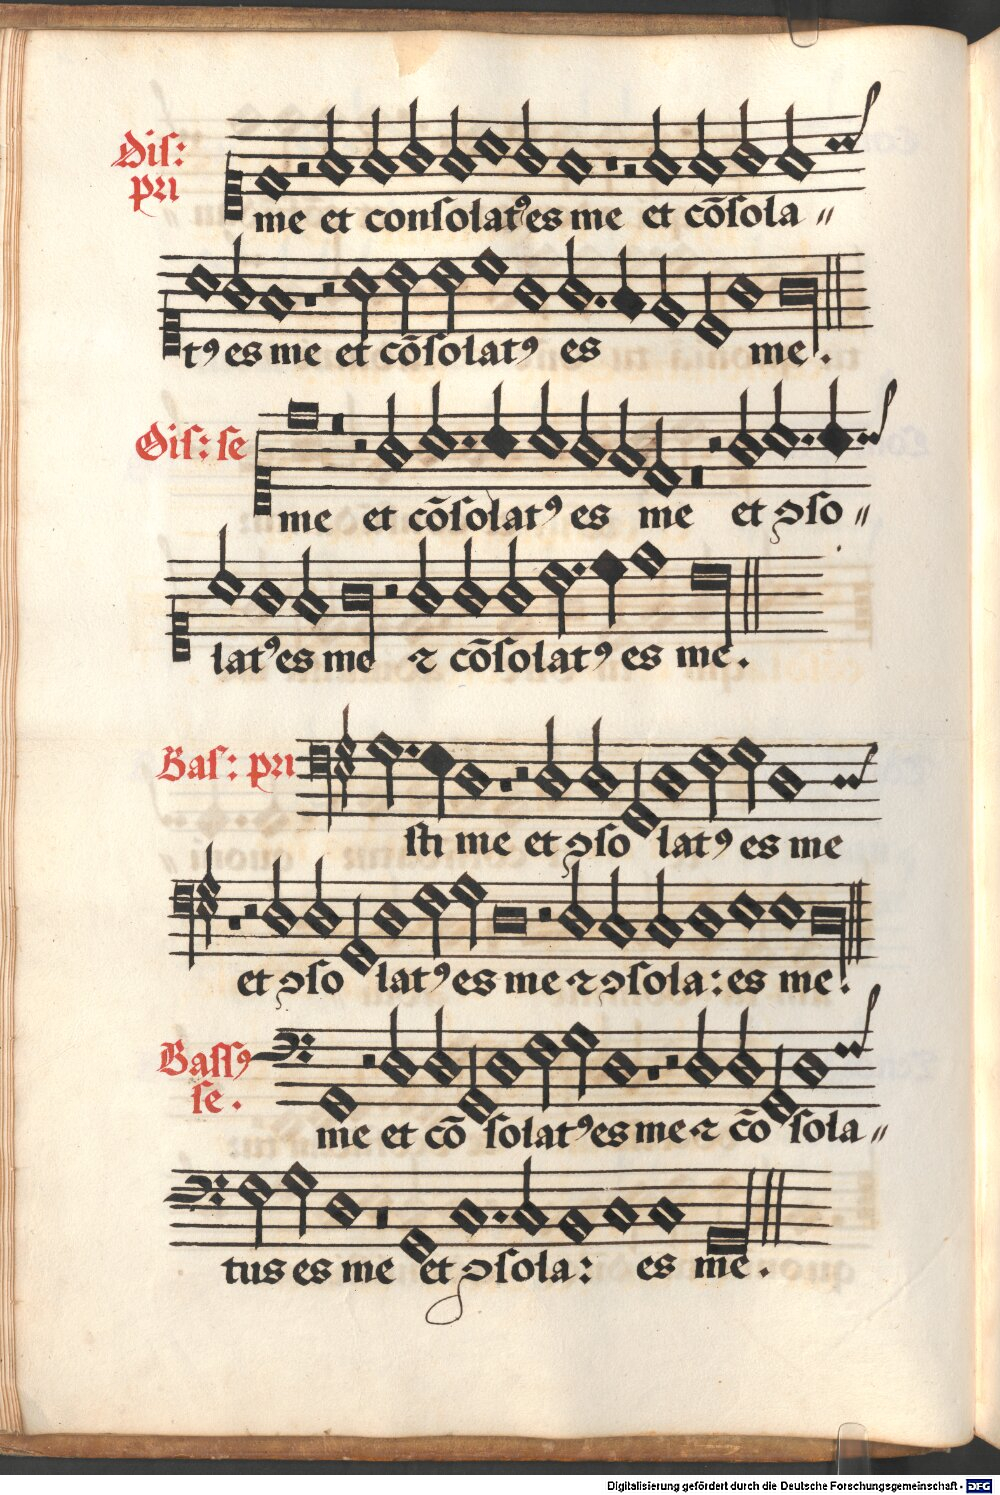 Dis:
pri
me et consolatꝰ es me et cõsola〃
tꝰ es me et cõsolatꝰ es me.
Dis: se
me et cõsolatꝰ es me et ↄso〃
latꝰ es me ⁊ cõsolatꝰ es me.
Bas: pri
sti me et ↄso latꝰ es me
et ↄso latꝰ es me ⁊ ↄsola: es me:
Bassꝰ
se.
me et cõ solatꝰ es me ⁊ cõ sola〃
tus es me et ↄsola: es me.
Digitalisierung gefördert durch die Deutsche Forschungsgemeinschaft - DFG